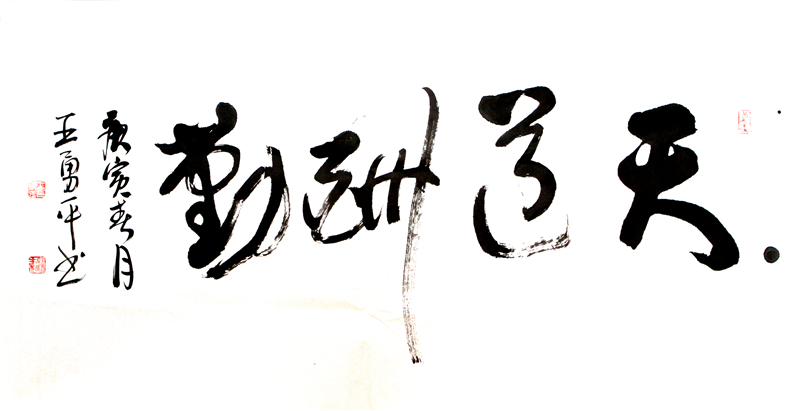 天道酬勤
庚寅春月
王勇平书